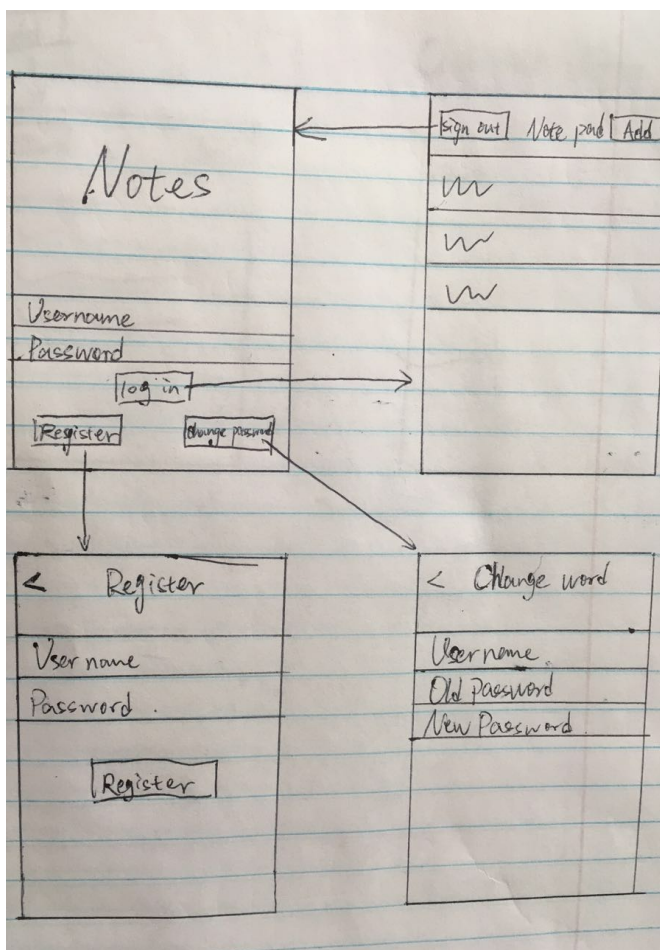 Notes
Username
Password
log in
Register
Change password
sign out Note pad Add
< Register
User name
Password
Register
< Change word
User name
Old Password
New Password